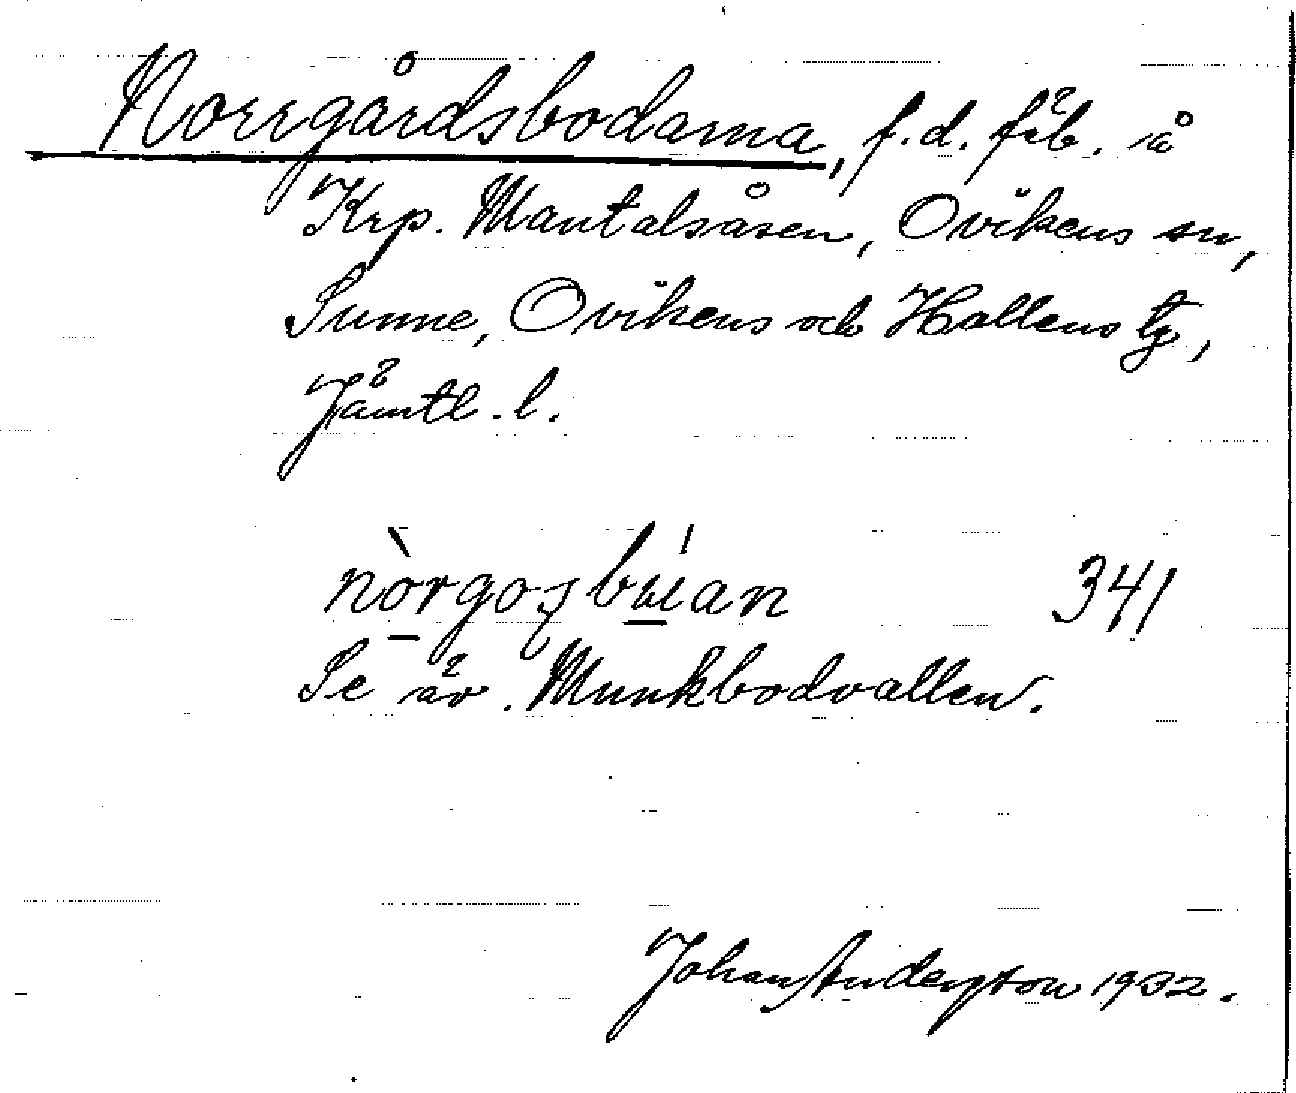 Norrgårdsbodarna, f.d. fäb. å
Krp. Mantalsåsen, Ovikens sn,
Sunne, Ovikens och Hallens tg,
Jämtl. l.
341
Se äv. Munkbodvallen.
Johan Anderston 1932.